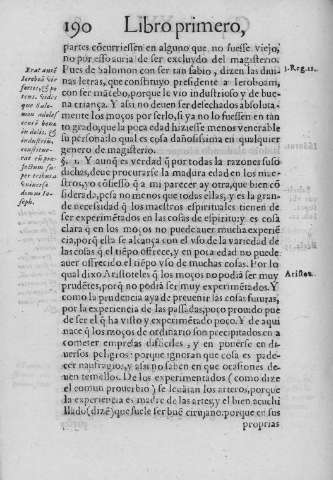 190 Libro primero,
partes cõcurriessen en alguno que no fuesse viejo,
no por esso auria de ser excluydo del magisterio.
Pues de Salomon con ser tan sabio, dizen las diui-
nas letras, que constituyo presidente a Ieroboam,
con ser mãcebo, porque le vio industrioso y de bue-
na criança. Y assi no deuen ser desechados absoluta-
mente los moços por serlo, si ya no lo fuessen en tan-
to grado, que la poca edad hiziesse menos venerable
su persona: lo qual es cosa dañosissima en qualquier
genero de magisterio.
§. 1. Y aunq̃ es verdad q̃ por todas la razones suso
dichas, deue procurarse la madura edad en los mae-
stros, yo cõfiesso q̃ a mi parecer ay otra, que bien cõ
siderada, pesa no menos que todas ellas, y es la gran-
de necessidad q̃ los maestros espirituales tienen de
ser experimẽtados en las cosas de espiritu: y es cosa
clara q̃ en los moços no puede auer mucha experiẽ-
cia, porq̃ ella se alcança con el vso de la variedad de
las cosas q̃ el tiẽpo offrece, y en poca edad no puede
auer offrecido el tiẽpo vso de muchas cosas. Por lo
qual dixo Aristoteles q̃ los moços no podiã ser muy
prudẽtes, porq̃ no podiã ser muy experimẽtados. Y
como la prudencia aya de preuenir las cosas futuras,
por la experiencia de las passadas, poco prouido pue
de ser el q̃ ha visto y experimẽtado poco. Y de aqui
nace q̃ los moços de ordinario son precipitados en a
cometer empresas difficiles, y en ponerse en di-
uersos peligros: porque ignoran que cosa es pade-
cer naufragios, y assi no saben en que ocasiones de-
uen temellos. De los experimentados (como dize
el comun prouerbio) se leuãtan los arteros, porque
la experiencia es madre de las artes, y el bien acuchi
llado (dizẽ) que suele ser buẽ cirujano: porque en sus
proprias
Erat autẽ
Ieroboã vir
fortis, & po
tens. Vidēs
que Salo-
mon adoles
centē bona
indolis, &
industriũ,
constitue-
rat eũ præ-
fectum su-
per tributa
vniuersæ
domus Io-
seph.
3. Reg. 11.
Aristot.